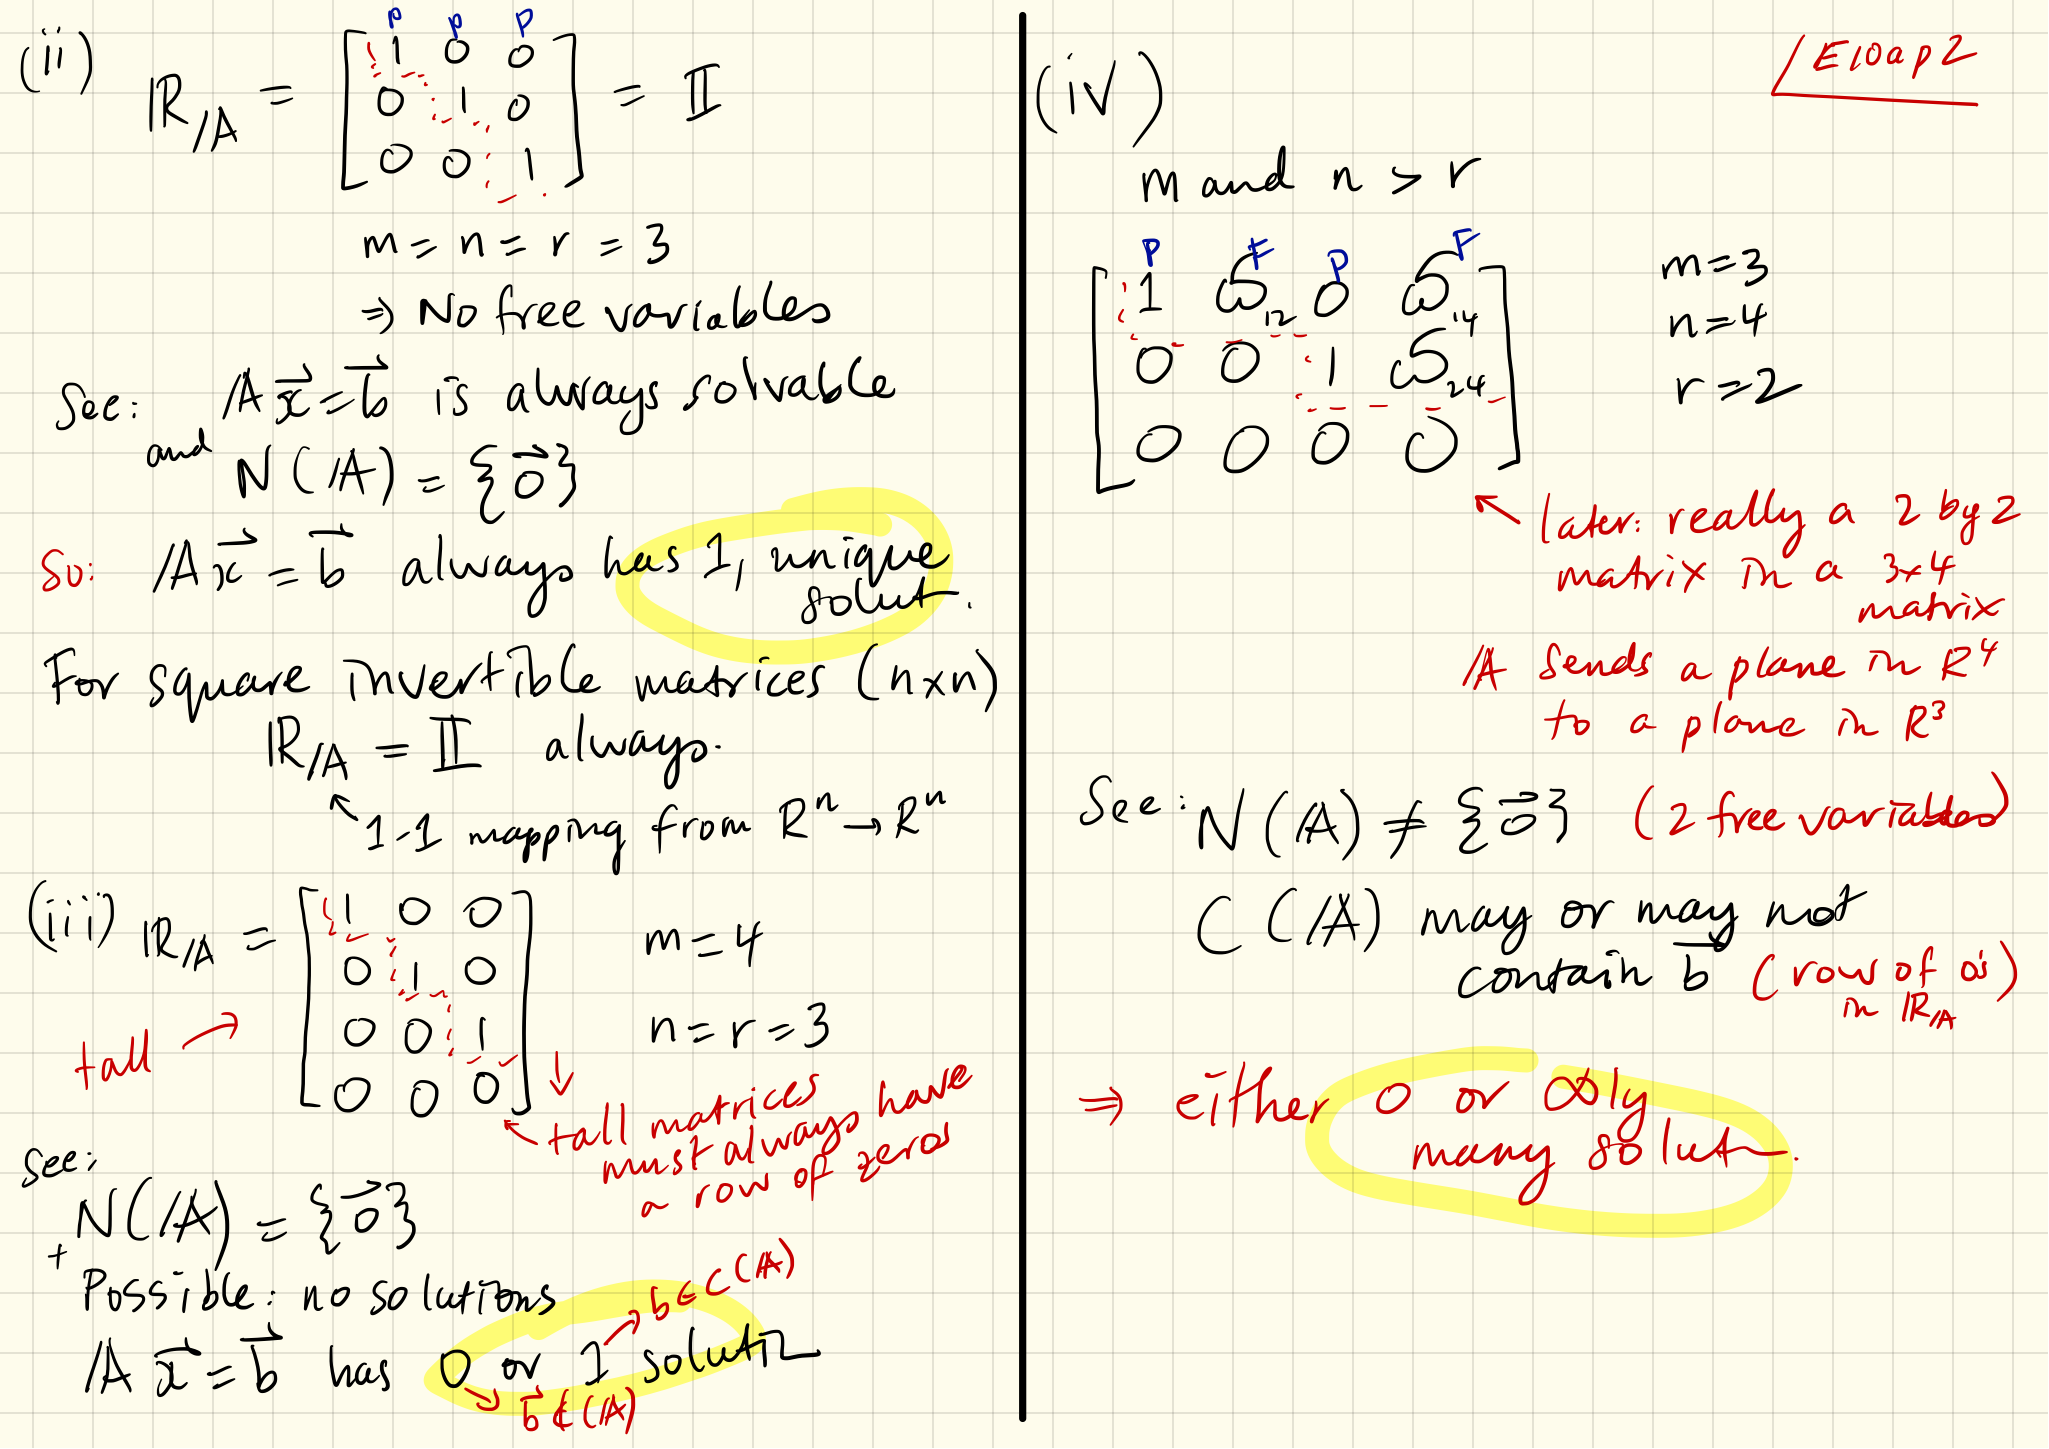 (ii)
P P P
ℝ_A = [ 1 0 0
0 1 0
0 0 1 ] = 𝕀
m = n = r = 3
⇒ No free variables
See: 𝔸x⃗ = b⃗ is always solvable
and N(𝔸) = {0⃗}
So: 𝔸x⃗ = b⃗ always has 1, unique
solut.
For square invertible matrices (n×n)
ℝ_A = 𝕀 always.
↖ 1-1 mapping from Rⁿ → Rⁿ
(iii) ℝ_A = [ 1 0 0
0 1 0
0 0 1
0 0 0 ]
m = 4
n = r = 3
tall →
↖ tall matrices
must always have
a row of zeros
See:
N(𝔸) = {0⃗}
+
Possible: no solutions
→ b ∈ C(𝔸)
𝔸x⃗ = b⃗ has 0 or 1 solutn
→ b⃗ ∉ C(𝔸)
E10ap2
(iv)
m and n > r
P F P F
[ 1 ʊ₁₂ 0 ʊ₁₄
0 0 1 ʊ₂₄
0 0 0 0 ]
m = 3
n = 4
r = 2
↖ later: really a 2 by 2
matrix in a 3x4
matrix
𝔸 sends a plane in R⁴
to a plane in R³
See: N(𝔸) ≠ {0⃗} (2 free variables)
C(𝔸) may or may not
contain b⃗ (row of 0's)
in ℝ_A
⇒ either 0 or ∞ly
many solut.